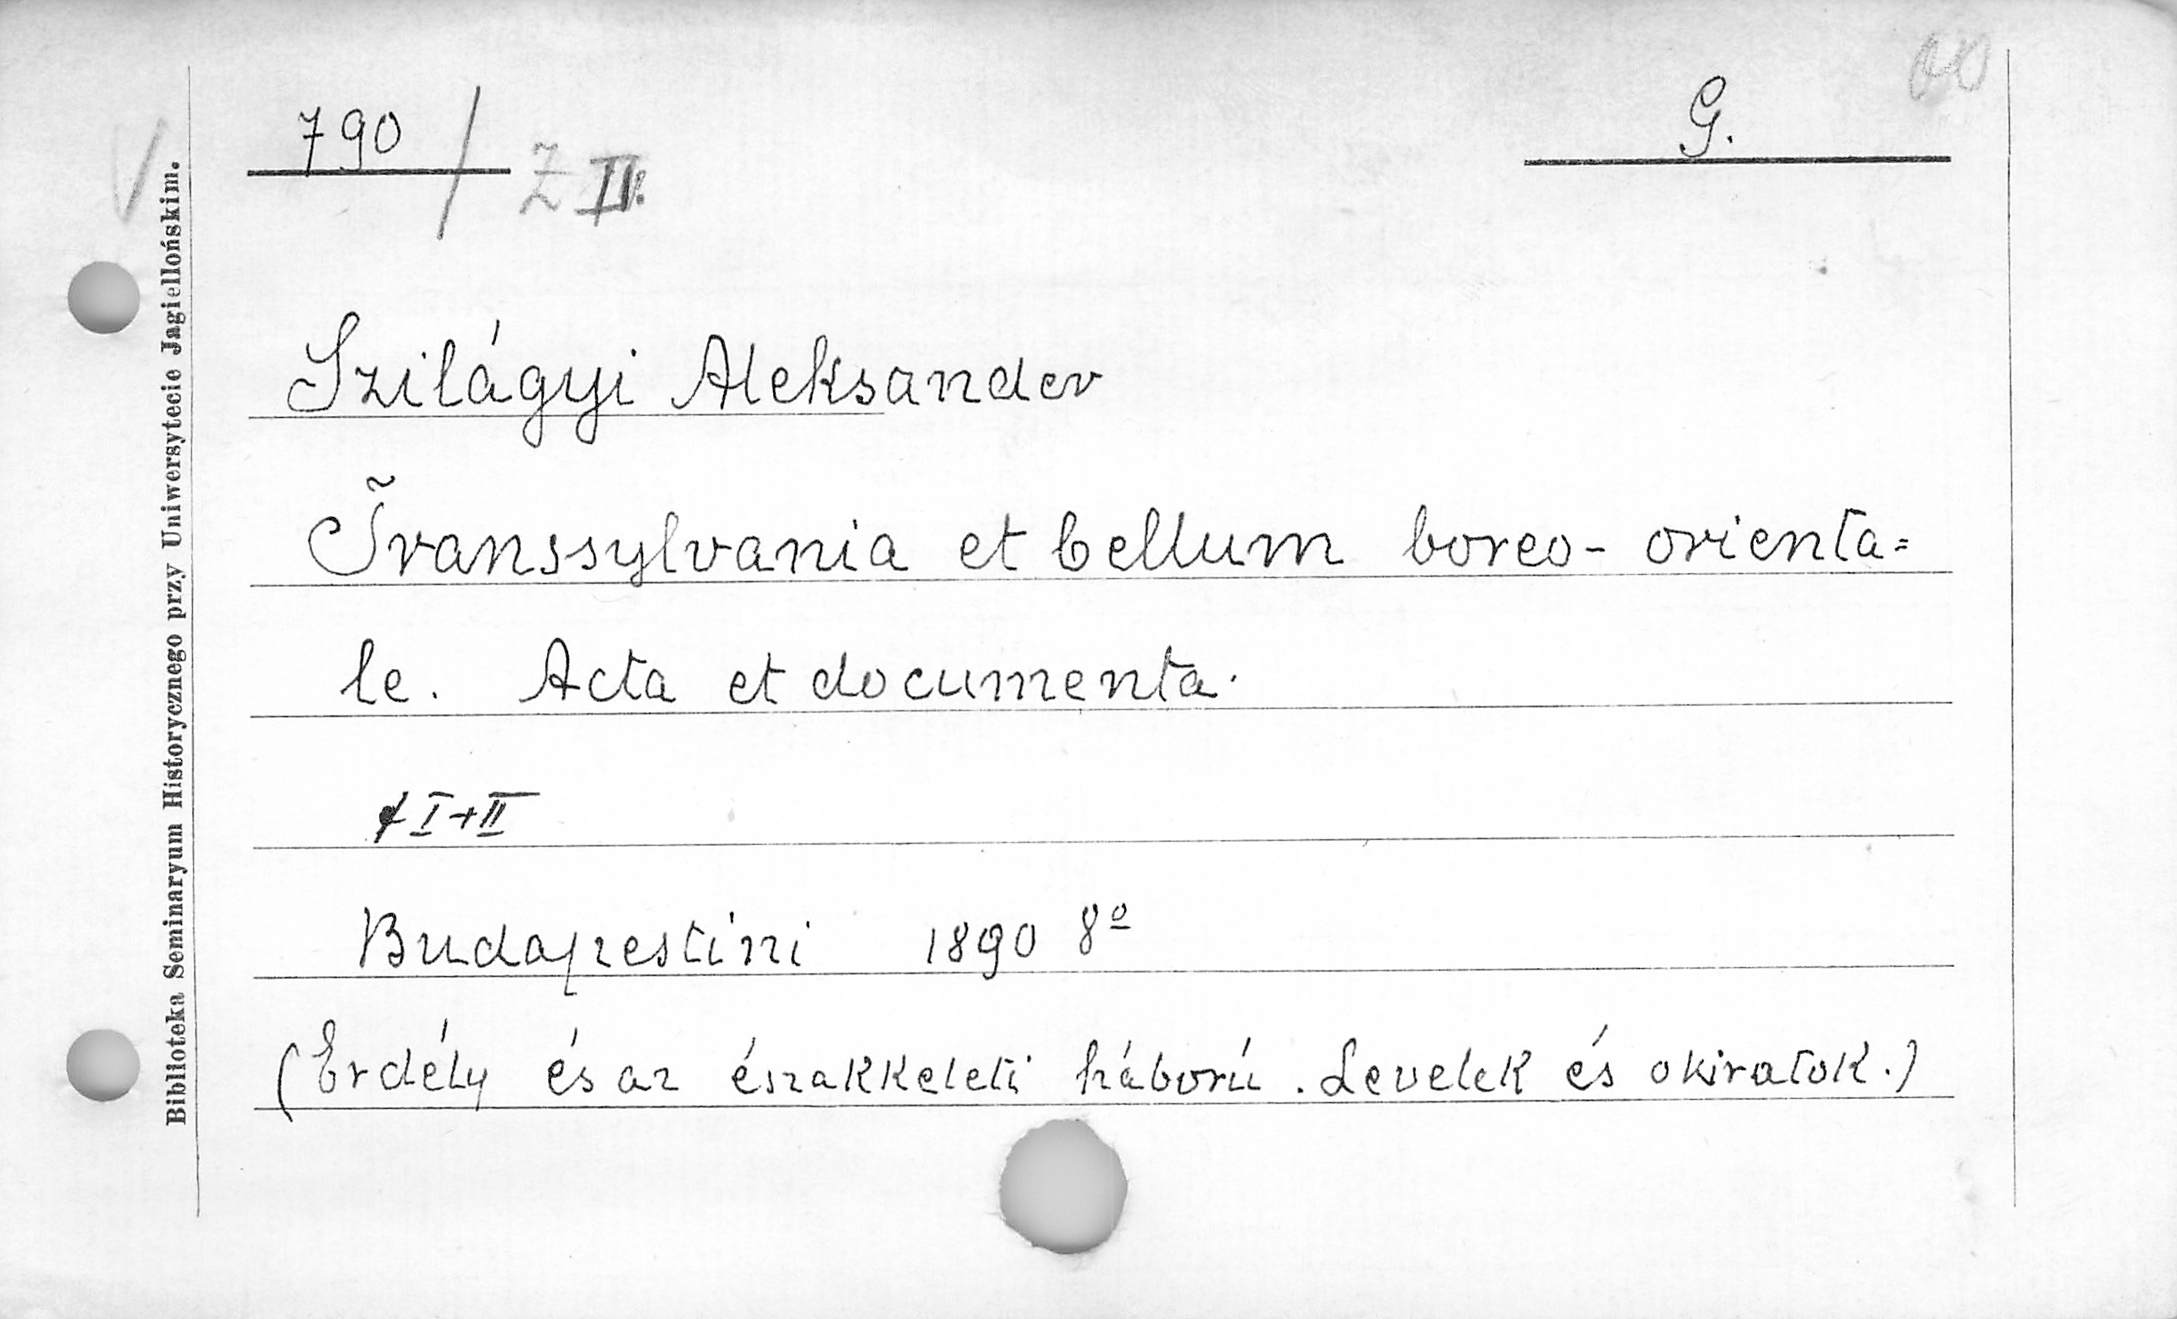 790 / Z II. G.
Szilágyi Aleksander
Transsylvania et bellum boreo- orienta=
le. Acta et documenta.
I+II
Budapestini 1890 8º
(Erdély és az északkeleti háború. Levelek és okiratok.)
Biblioteka Seminaryum Historycznego przy Uniwersytecie Jagiellońskim.